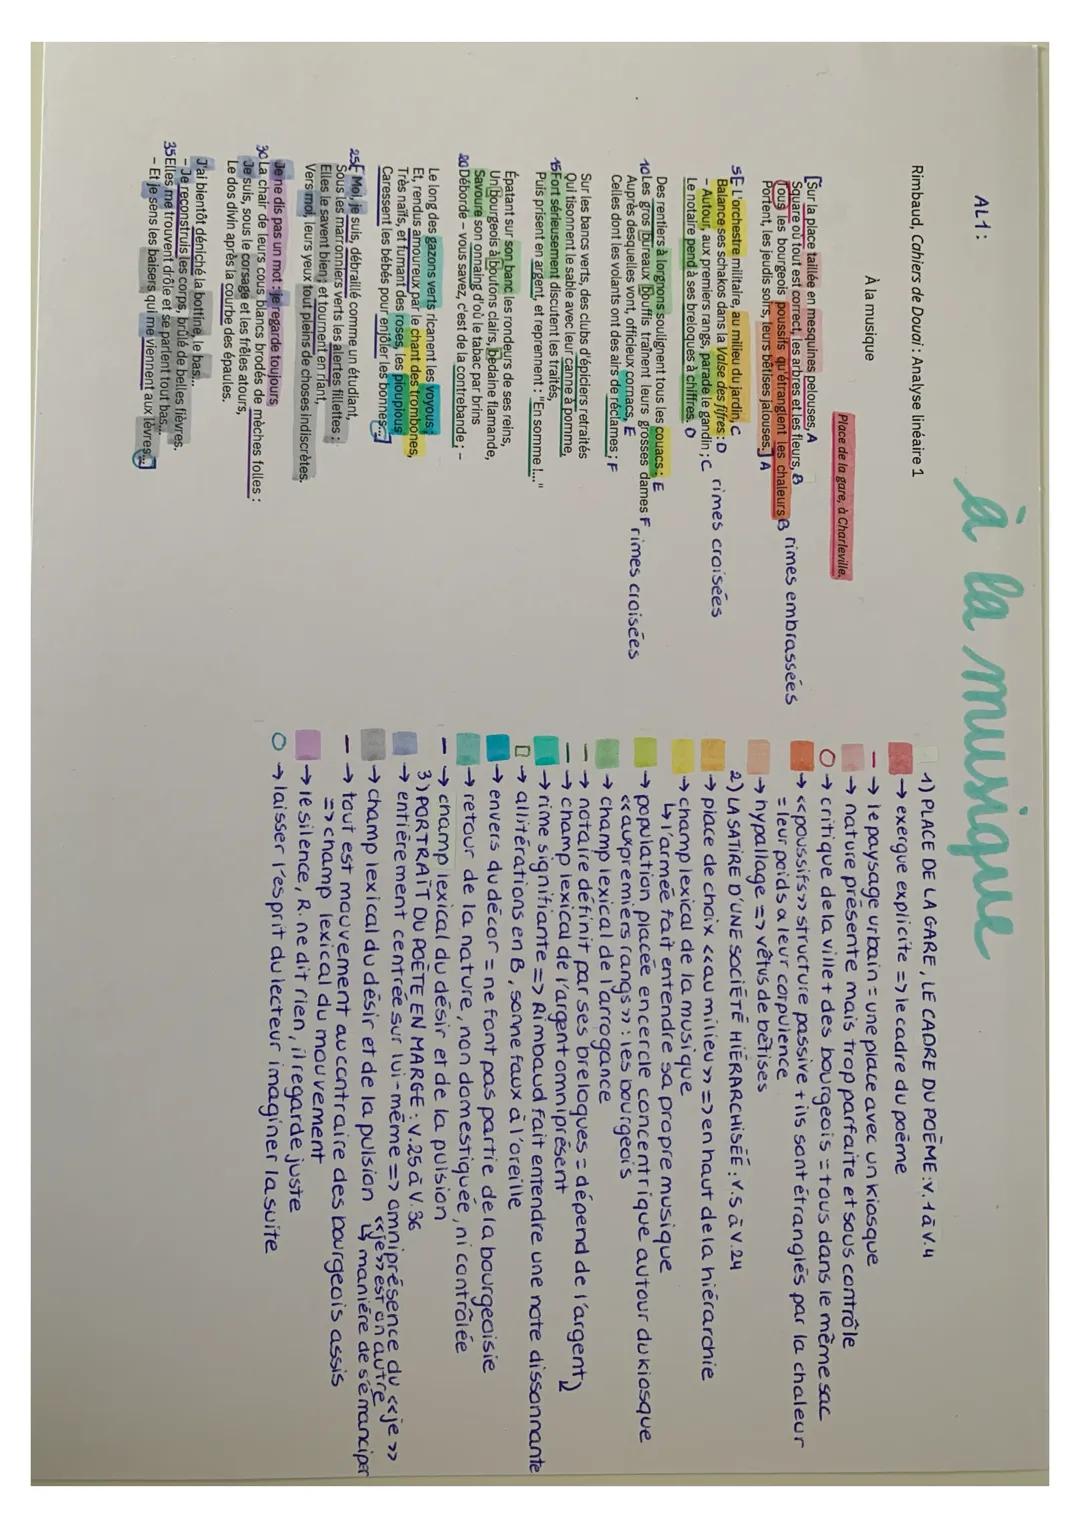 AL1 :
à la musique
Rimbaud, Cahiers de Douai : Analyse linéaire 1
À la musique
Place de la gare, à Charleville.
[Sur la place taillée en mesquines pelouses, A
Square où tout est correct, les arbres et les fleurs, B
Tous les bourgeois poussifs qu'étranglent les chaleurs B rimes embrassées
Portent, les jeudis soirs, leurs bêtises jalouses.] A
5[- L'orchestre militaire, au milieu du jardin, C
Balance ses schakos dans la Valse des fifres : D
- Autour, aux premiers rangs, parade le gandin ; C rimes croisées
Le notaire pend à ses breloques à chiffres. D
Des rentiers à lorgnons soulignent tous les couacs : E
10Les gros bureaux bouffis traînent leurs grosses dames F
Auprès desquelles vont, officieux cornacs, E rimes croisées
Celles dont les volants ont des airs de réclames ; F
Sur les bancs verts, des clubs d'épiciers retraités
Qui tisonnent le sable avec leur canne à pomme,
15Fort sérieusement discutent les traités,
Puis prisent en argent, et reprennent : "En somme !..."
Épatant sur son banc les rondeurs de ses reins,
Un bourgeois à boutons clairs, bedaine flamande,
Savoure son onnaing d'où le tabac par brins
20Déborde - vous savez, c'est de la contrebande ; -
Le long des gazons verts ricanent les voyous ;
Et, rendus amoureux par le chant des trombones,
Très naïfs, et fumant des roses, les pioupious
Caressent les bébés pour enjôler les bonnes...]
25[- Moi, je suis, débraillé comme un étudiant,
Sous les marronniers verts les alertes fillettes :
Elles le savent bien ; et tournent en riant,
Vers moi, leurs yeux tout pleins de choses indiscrètes.
Je ne dis pas un mot : je regarde toujours
30La chair de leurs cous blancs brodés de mèches folles :
Je suis, sous le corsage et les frêles atours,
Le dos divin après la courbe des épaules.
J'ai bientôt déniché la bottine, le bas...
- Je reconstruis les corps, brûlé de belles fièvres.
35Elles me trouvent drôle et se parlent tout bas...
- Et je sens les baisers qui me viennent aux lèvres...]
1) PLACE DE LA GARE, LE CADRE DU POÈME : v.1 à v.4
→ exergue explicite => le cadre du poème
→ le paysage urbain = une place avec un kiosque
→ nature présente mais trop parfaite et sous contrôle
→ critique de la ville + des bourgeois = tous dans le même sac
→ «poussifs» structure passive + ils sont étranglés par la chaleur
= leur poids a leur corpulence
→ hypallage => vêtus de bêtises
2) LA SATIRE D'UNE SOCIÉTÉ HIÉRARCHISÉE : v.5 à v.24
→ place de choix «au milieu» => en haut de la hiérarchie
→ champ lexical de la musique
↳ l'armée fait entendre sa propre musique
→ population placée en cercle concentrique autour du kiosque
«aux premiers rangs» : les bourgeois
→ champ lexical de l'arrogance
→ notaire définit par ses breloques = dépend de l'argent
→ champ lexical de l'argent omniprésent
→ rime signifiante => Rimbaud fait entendre une note dissonnante
→ allitérations en B, sonne faux à l'oreille
→ envers du décor = ne font pas partie de la bourgeoisie
→ retour de la nature, non domestiquée, ni contrôlée
→ champ lexical du désir et de la pulsion
3) PORTRAIT DU POÈTE EN MARGE : v.25 à v.36
→ entièrement centrée sur lui-même => omniprésence du «je»
«je» est un autre
→ champ lexical du désir et de la pulsion ↳ manière de s'émanciper
→ tout est mouvement au contraire des bourgeois assis
=> champ lexical du mouvement
→ le silence, R. ne dit rien, il regarde juste
→ laisser l'esprit du lecteur imaginer la suite